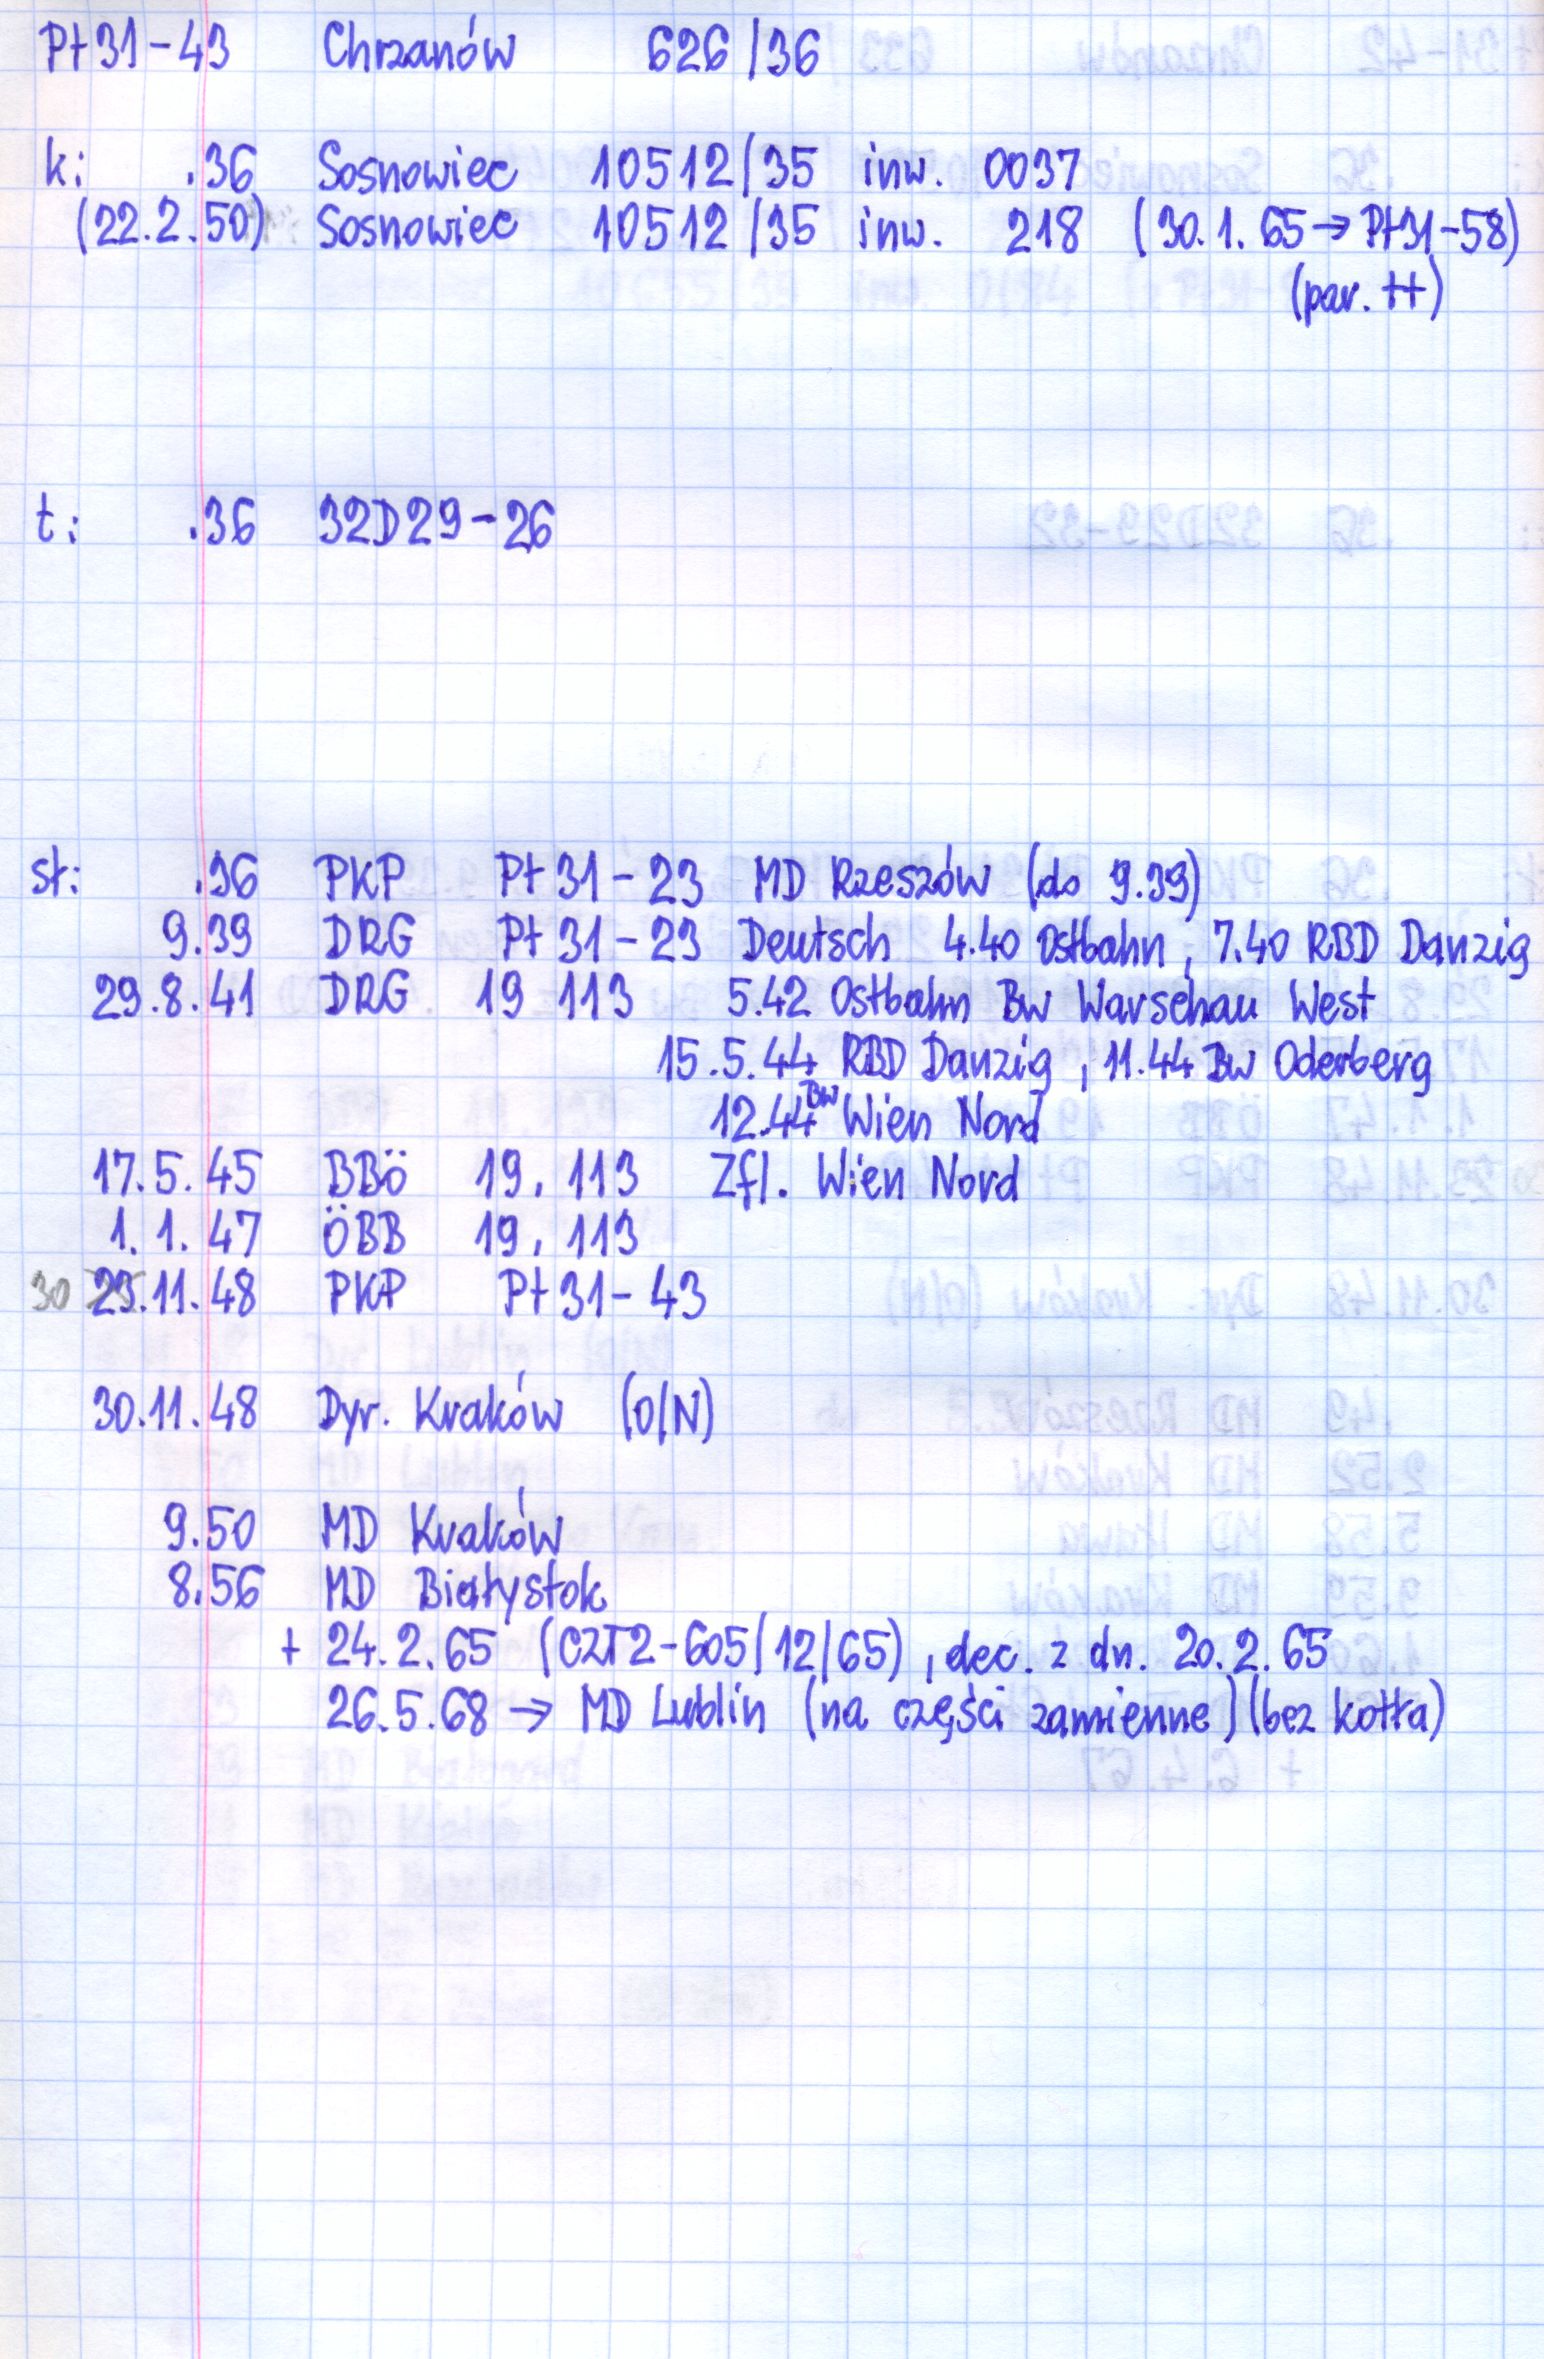 Pt31-43 Chrzanów 626/36
k: .36 Sosnowiec 10512/35 inw. 0037
(22.2.50) Sosnowiec 10512/35 inw. 218 (30.1.65→Pt31-58)
(par. ++)
t: .36 32D29-26
st: .36 PKP Pt31-23 MD Rzeszów (do 9.39)
9.39 DRG Pt31-23 Deutsch 4.40 Ostbahn, 7.40 RBD Danzig
29.8.41 DRG 19 113 5.42 Ostbahn Bw Warschau West
15.5.44 RBD Danzig, 11.44 Bw Oderberg
12.44 Bw Wien Nord
17.5.45 BBÖ 19.113 Zfl. Wien Nord
1.1.47 ÖBB 19.113
30 23.11.48 PKP Pt31-43
30.11.48 Dyr. Kraków (O/N)
9.50 MD Kraków
8.56 MD Białystok
+ 24.2.65 (CZT2-605/12/65), dec. z dn. 20.2.65
26.5.68 → MD Lublin (na części zamienne) (bez kotła)